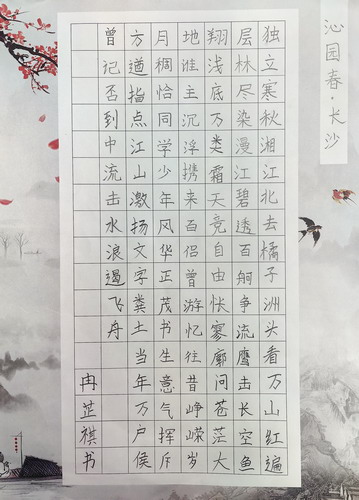 沁园春·长沙
独立寒秋湘江北去橘子洲头看万山红遍
层林尽染漫江碧透百舸争流鹰击长空鱼
翔浅底万类霜天竞自由怅寥廓问苍茫大
地谁主沉浮携来百侣曾游忆往昔峥嵘岁
月稠恰同学少年风华正茂书生意气挥斥
方遒指点江山激扬文字粪土当年万户侯
曾记否到中流击水浪遏飞舟
冉芷祺书